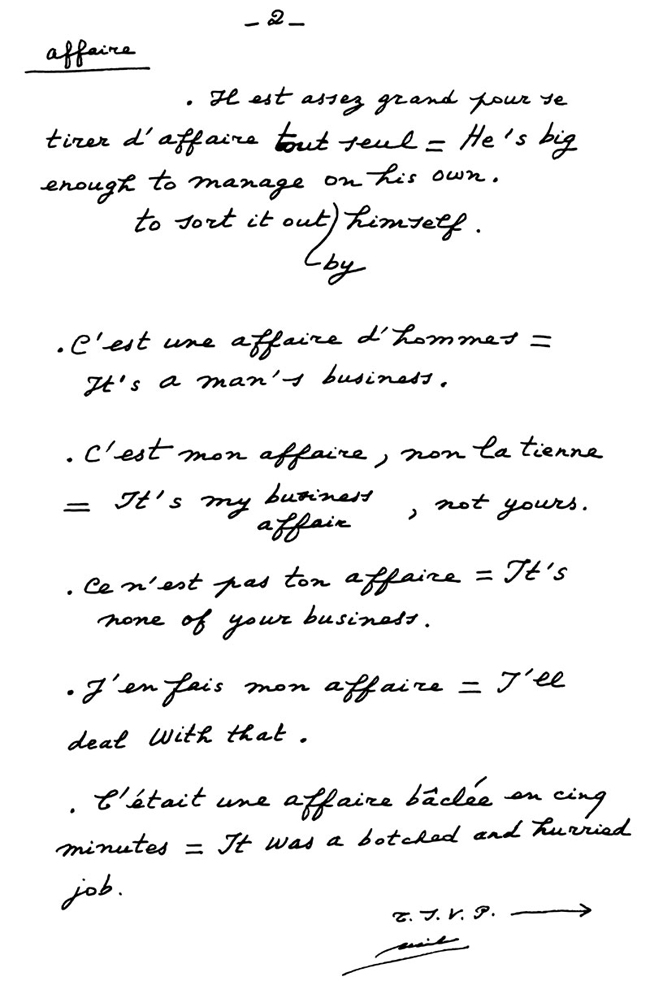 - 2 -
affaire
. Il est assez grand pour se
tirer d'affaire tout seul = He's big
enough to manage on his own.
to sort it out) himself.
by
. C'est une affaire d'hommes =
It's a man's business.
. C'est mon affaire, non la tienne
= It's my business , not yours.
affair
. Ce n'est pas ton affaire = It's
none of your business.
. J'en fais mon affaire = I'll
deal with that.
. C'était une affaire bâclée en cinq
minutes = It was a botched and hurried
job.
T.S.V.P. →